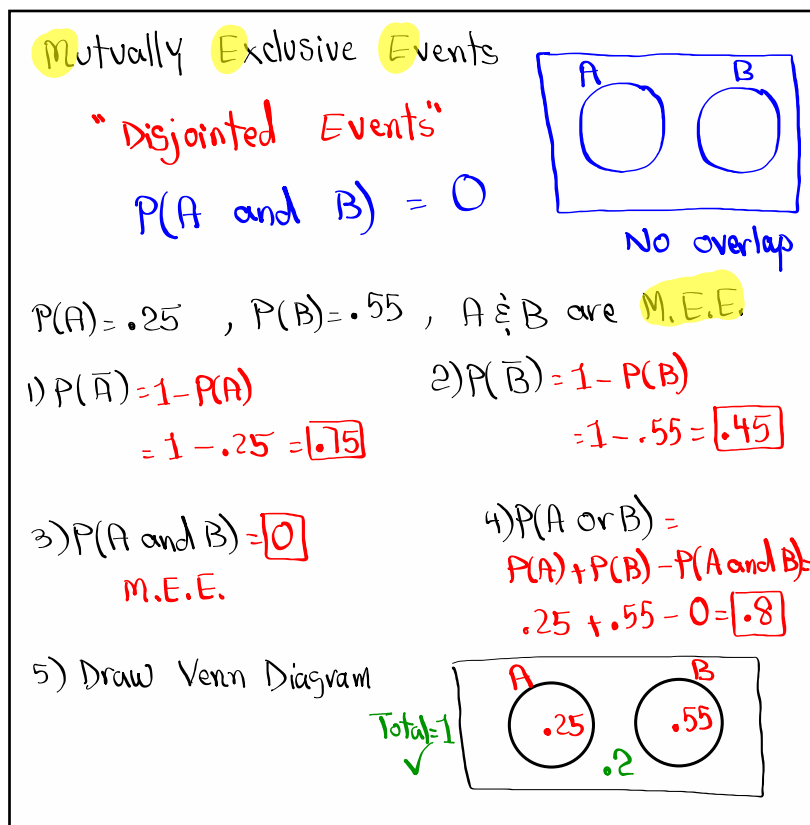 Mutually Exclusive Events
"Disjointed Events"
P(A and B) = 0
A B
No overlap
P(A) = .25 , P(B) = .55 , A & B are M.E.E.
1) P(Ā) = 1 - P(A)
= 1 - .25 = .75
2) P(B̄) = 1 - P(B)
= 1 - .55 = .45
3) P(A and B) = 0
M.E.E.
4) P(A or B) =
P(A) + P(B) - P(A and B) =
.25 + .55 - 0 = .8
5) Draw Venn Diagram
A B
Total = 1
✓
.25 .55
.2